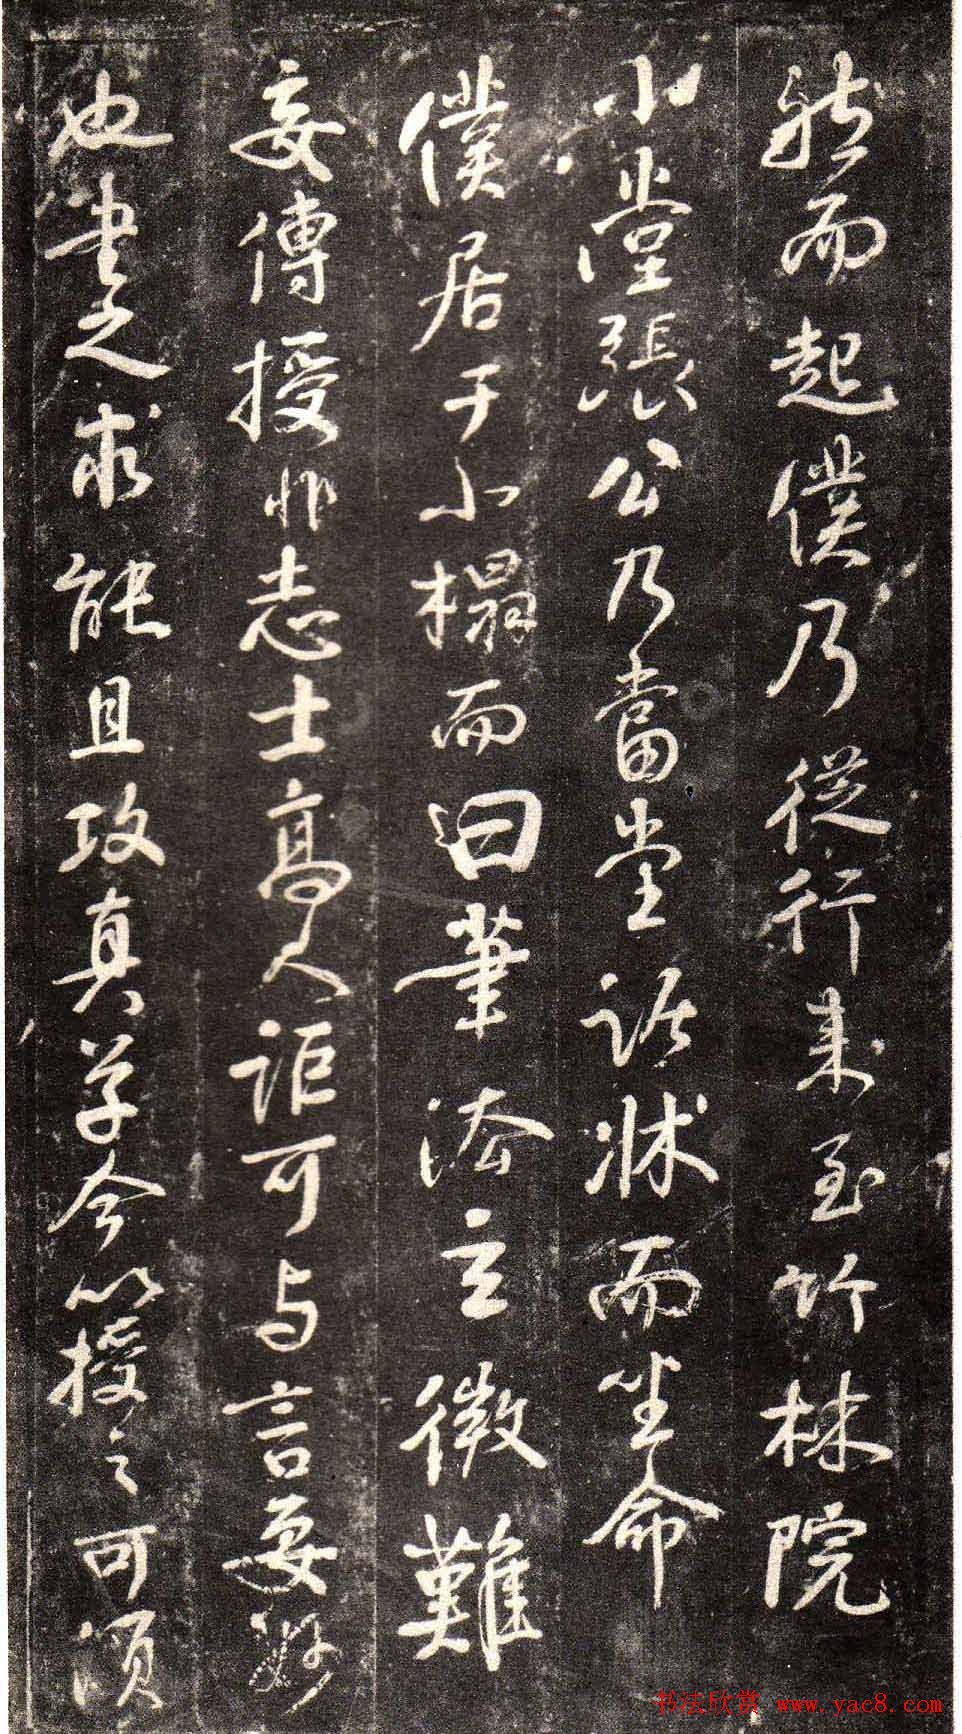 然而起僕乃從行来至竹林院
小堂張公乃當堂踞牀而坐命
僕居于小榻而曰筆法玄微難
妄傳授非志士高人詎可与言要妙
也書之求能且攻真草今以授之可須
书法欣赏 www.yac8.com